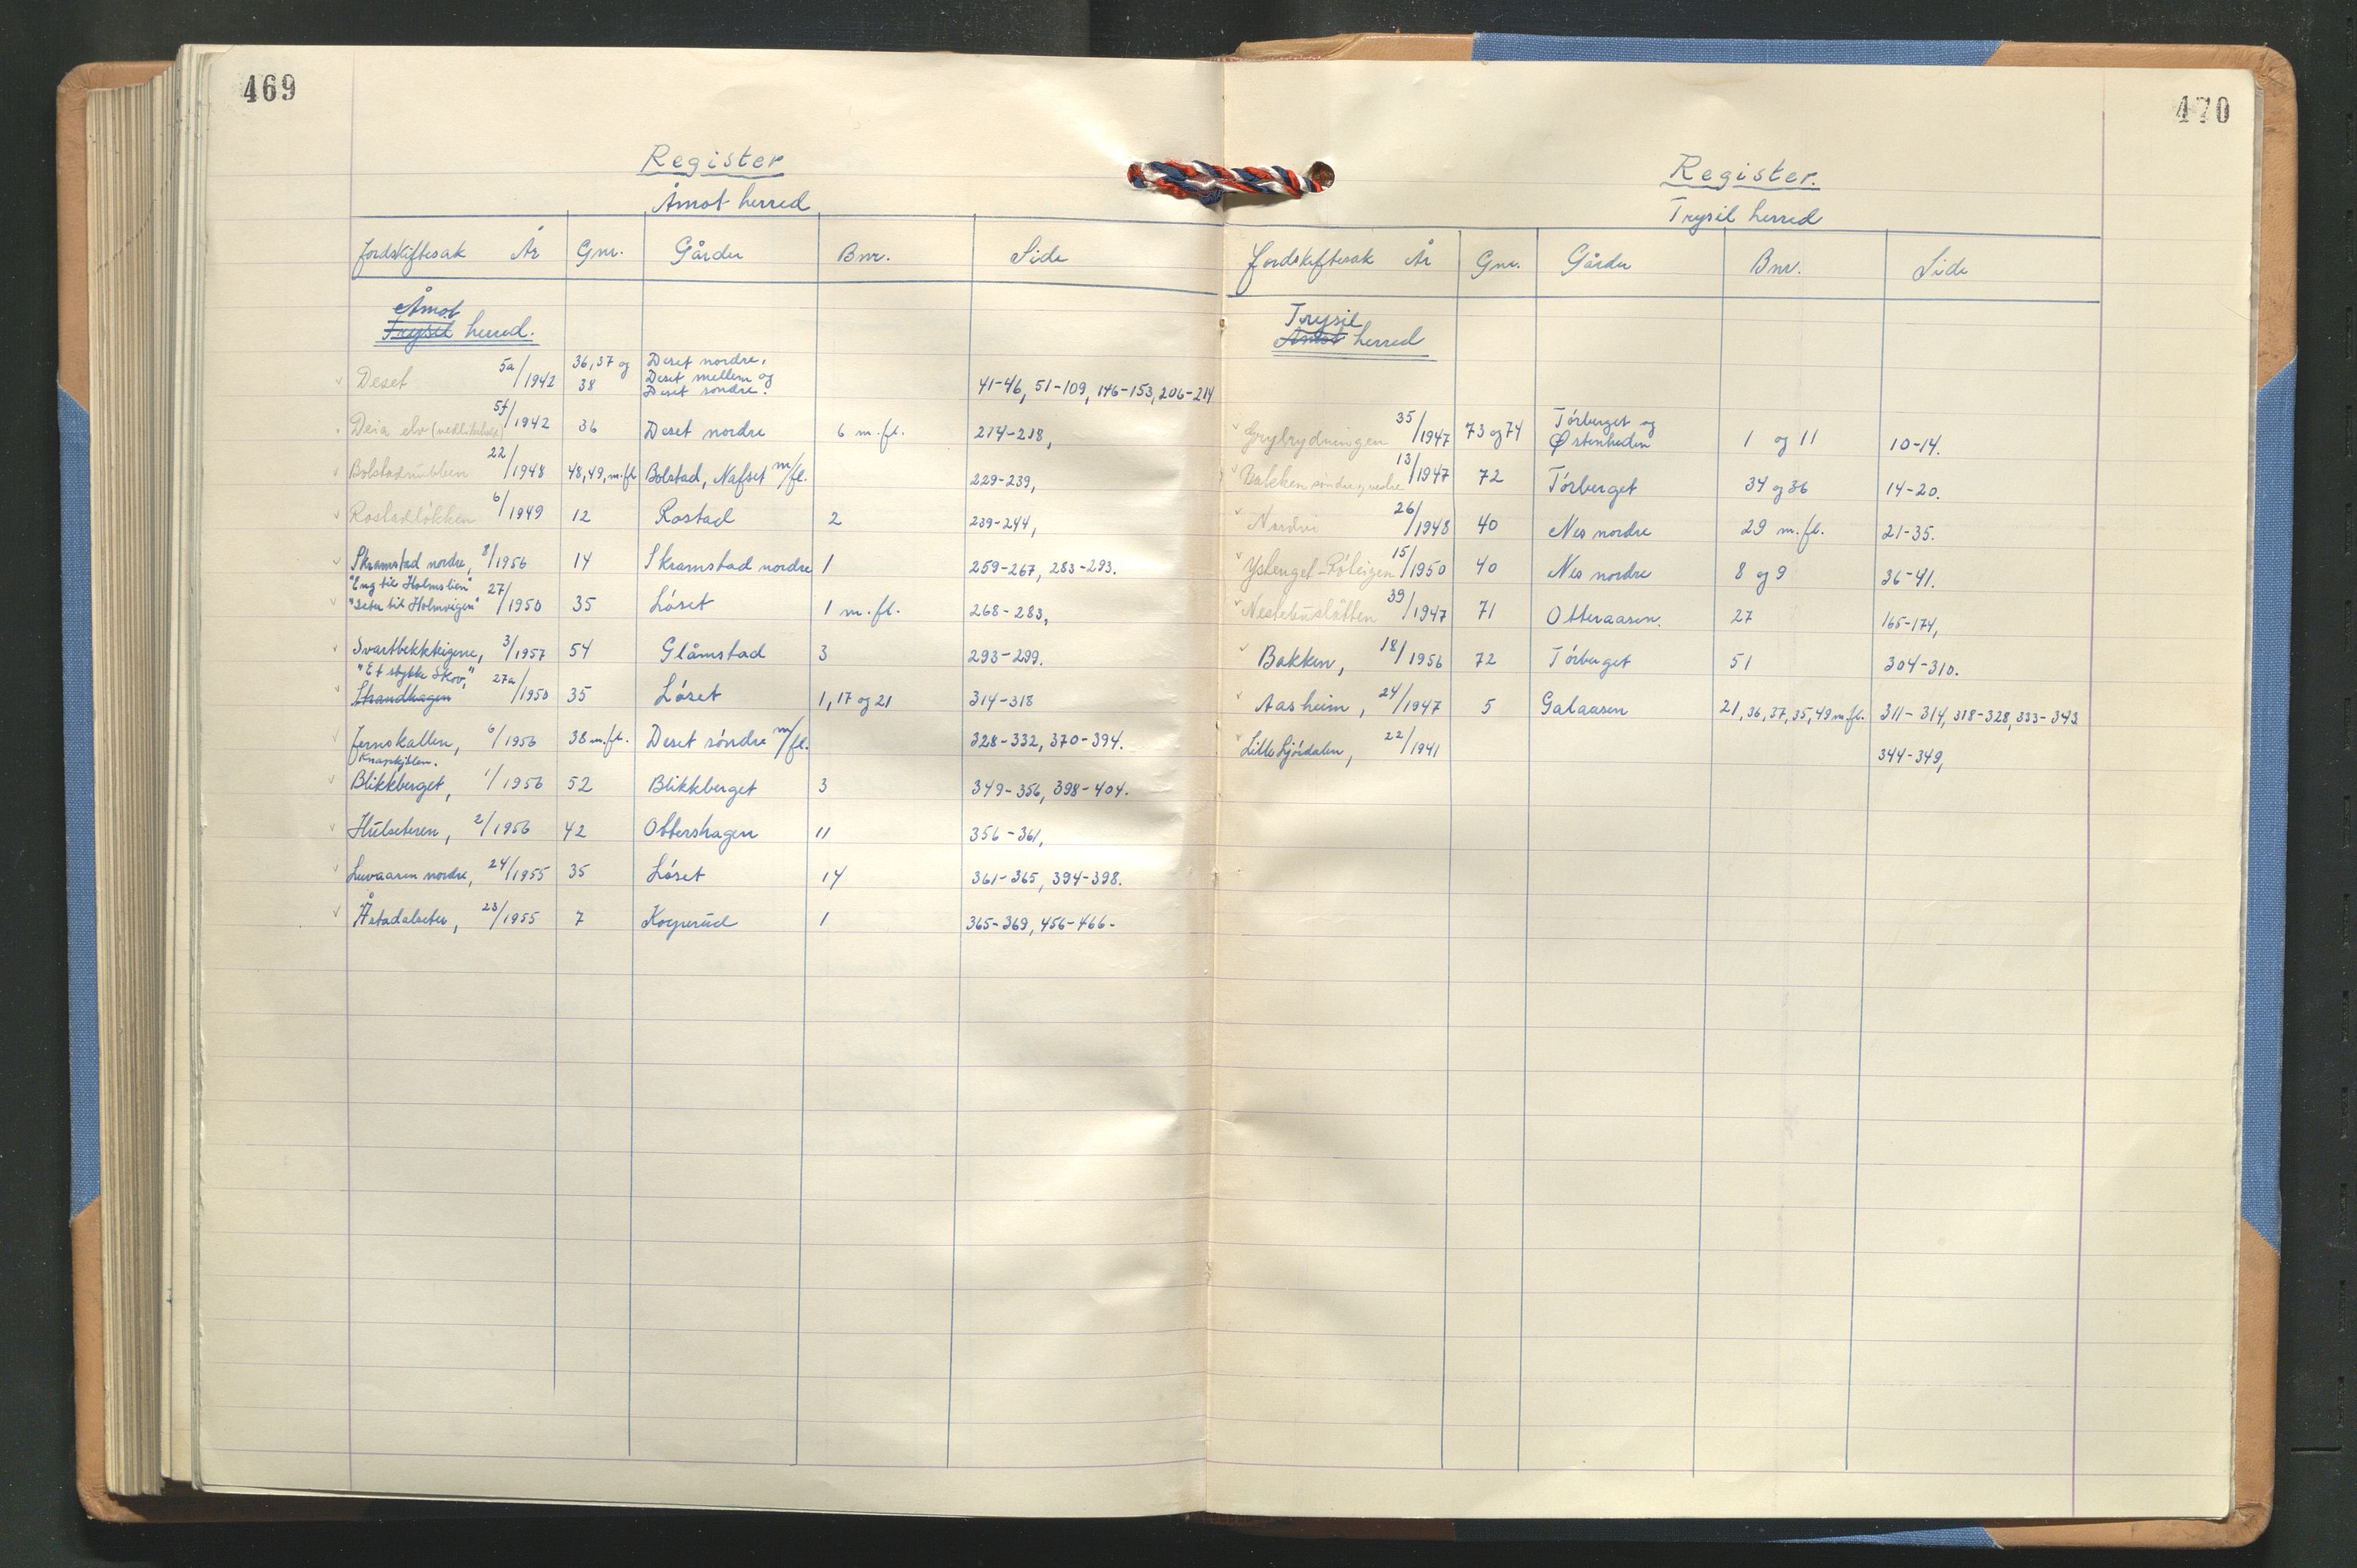 469
Register
Åmot herred
Jordskiftesak År Gnr. Gårder Bnr. Side
Åmot
Trysil herred.
Deset 5a/1942 36,37 og 38 Deset nordre, Deset mellem og Deset søndre. 41-46, 51-109, 146-153, 206-214
Deia elv (vedlikehold) 5f/1942 36 Deset nordre 6 m.fl. 214-218,
22/1948 48,49, m.fl Bolstad, Nafset m/fl. 229-239,
Rostadløkken 6/1949 12 Rostad 2 239-244,
Skramstad nordre, 8/1956 14 Skramstad nordre 1 259-267, 283-293.
"Eng til Holmslien"
"Seter til Holmvigen" 27/1950 35 Løset 1 m.fl. 268-283,
Svartbekkteigene, 3/1957 54 Glåmstad 3 293-299.
"Et stykke Skov,"
Strandhagen 27a/1950 35 Løset 1, 17 og 21 314-318
Jernskallen, 6/1956 38 m.fl. Deset søndre m/fl. 328-332, 370-394.
Knapkjølen.
Blikkberget, 1/1956 52 Blikkberget 3 349-356, 398-404.
Hulseteren, 2/1956 42 Ottershagen 11 356-361,
Luvaasen nordre, 24/1955 35 Løset 14 361-365, 394-398.
Åstadalseter, 23/1955 7 Kogerud 1 365-369, 456-466-
470
Register.
Trysil herred
Jordskiftesak År Gnr. Gårder Bnr. Side
Trysil
Åmot herred
35/1947 73 og 74 Tørberget og Østenheden 1 og 11 10-14.
Bakken søndre og vestre 13/1947 72 Tørberget 34 og 36 14-20.
Nordvi 26/1948 40 Nes nordre 29 m.fl. 21-35.
15/1950 40 Nes nordre 8 og 9 36-41.
39/1947 71 Otteraasen. 27 165-174,
Bakken, 18/1956 72 Tørberget 51 304-310.
Aasheim, 24/1947 5 Galaasen 21, 36, 37, 35, 49 m.fl. 311-314, 318-328, 333-343
Lille Ljørdalen, 22/1941 344-349,